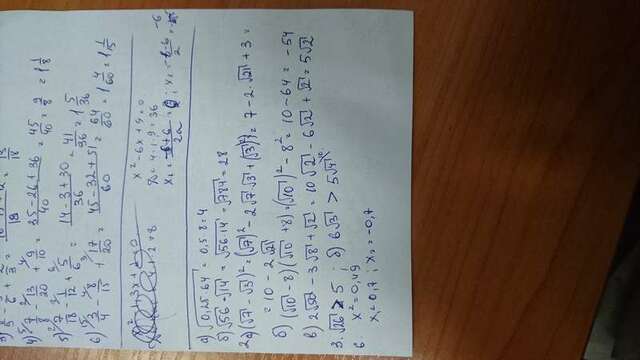 4) 7/8 - 13/20 + 9/10 = (35-26+36)/40 = 45/40 = 9/8 = 1 1/8
5) 7/18 - 1/12 + 5/6 = (14-3+30)/36 = 41/36 = 1 5/36
6) 3/4 - 8/15 + 17/20 = (45-32+51)/60 = 64/60 = 1 4/60 = 1 1/15
x²-6x+9=0
а) √0,25·64 = 0,5·8=4
б) √56·√14 = √56·14 = √784 = 28
2. а) (√7-√3)² = (√7)² - 2√7·√3 + (√3)² = 7-2·√21+3 =
= 10-2√21
б) (√10-8)(√10+8) = (√10)² - 8² = 10-64 = -54
в) 2√50 - 3√8 + √2 = 10√2 - 6√2 + √2 = 5√2
3. √26 > 5 ; б) 6√3 > 5√4
6. x²=0,49
x₁=0,7 ; x₂=-0,7